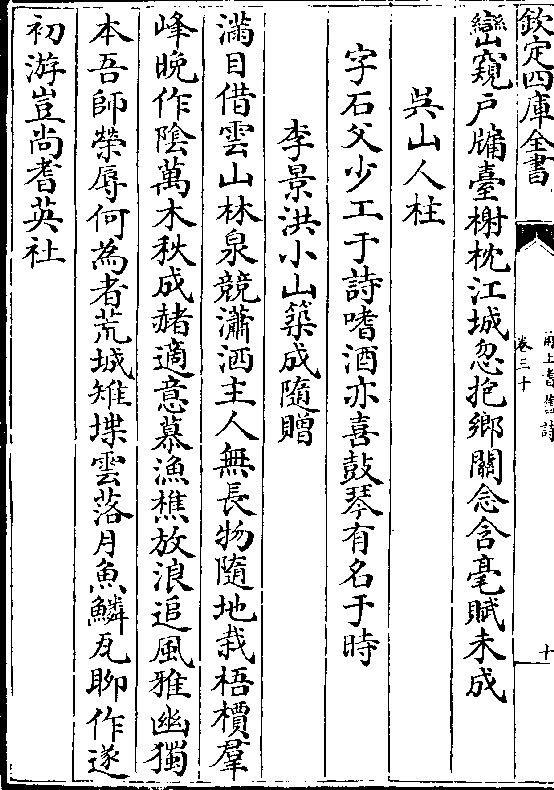 欽定四庫全書
甬上耆舊詩
卷三十
十
巒窺戶牖臺榭枕江城忽抱鄉關念含毫賦未成
吳山人柱
字石父少工于詩嗜酒亦喜鼓琴有名于時
李景洪小山築成隨贈
滿目借雲山林泉競瀟洒主人無長物隨地栽梧檟羣
峰晚作陰萬木秋成赭適意慕漁樵放浪追風雅幽獨
本吾師榮辱何為者荒城雉堞雲落月魚鱗瓦聊作遂
初游豈尚耆英社